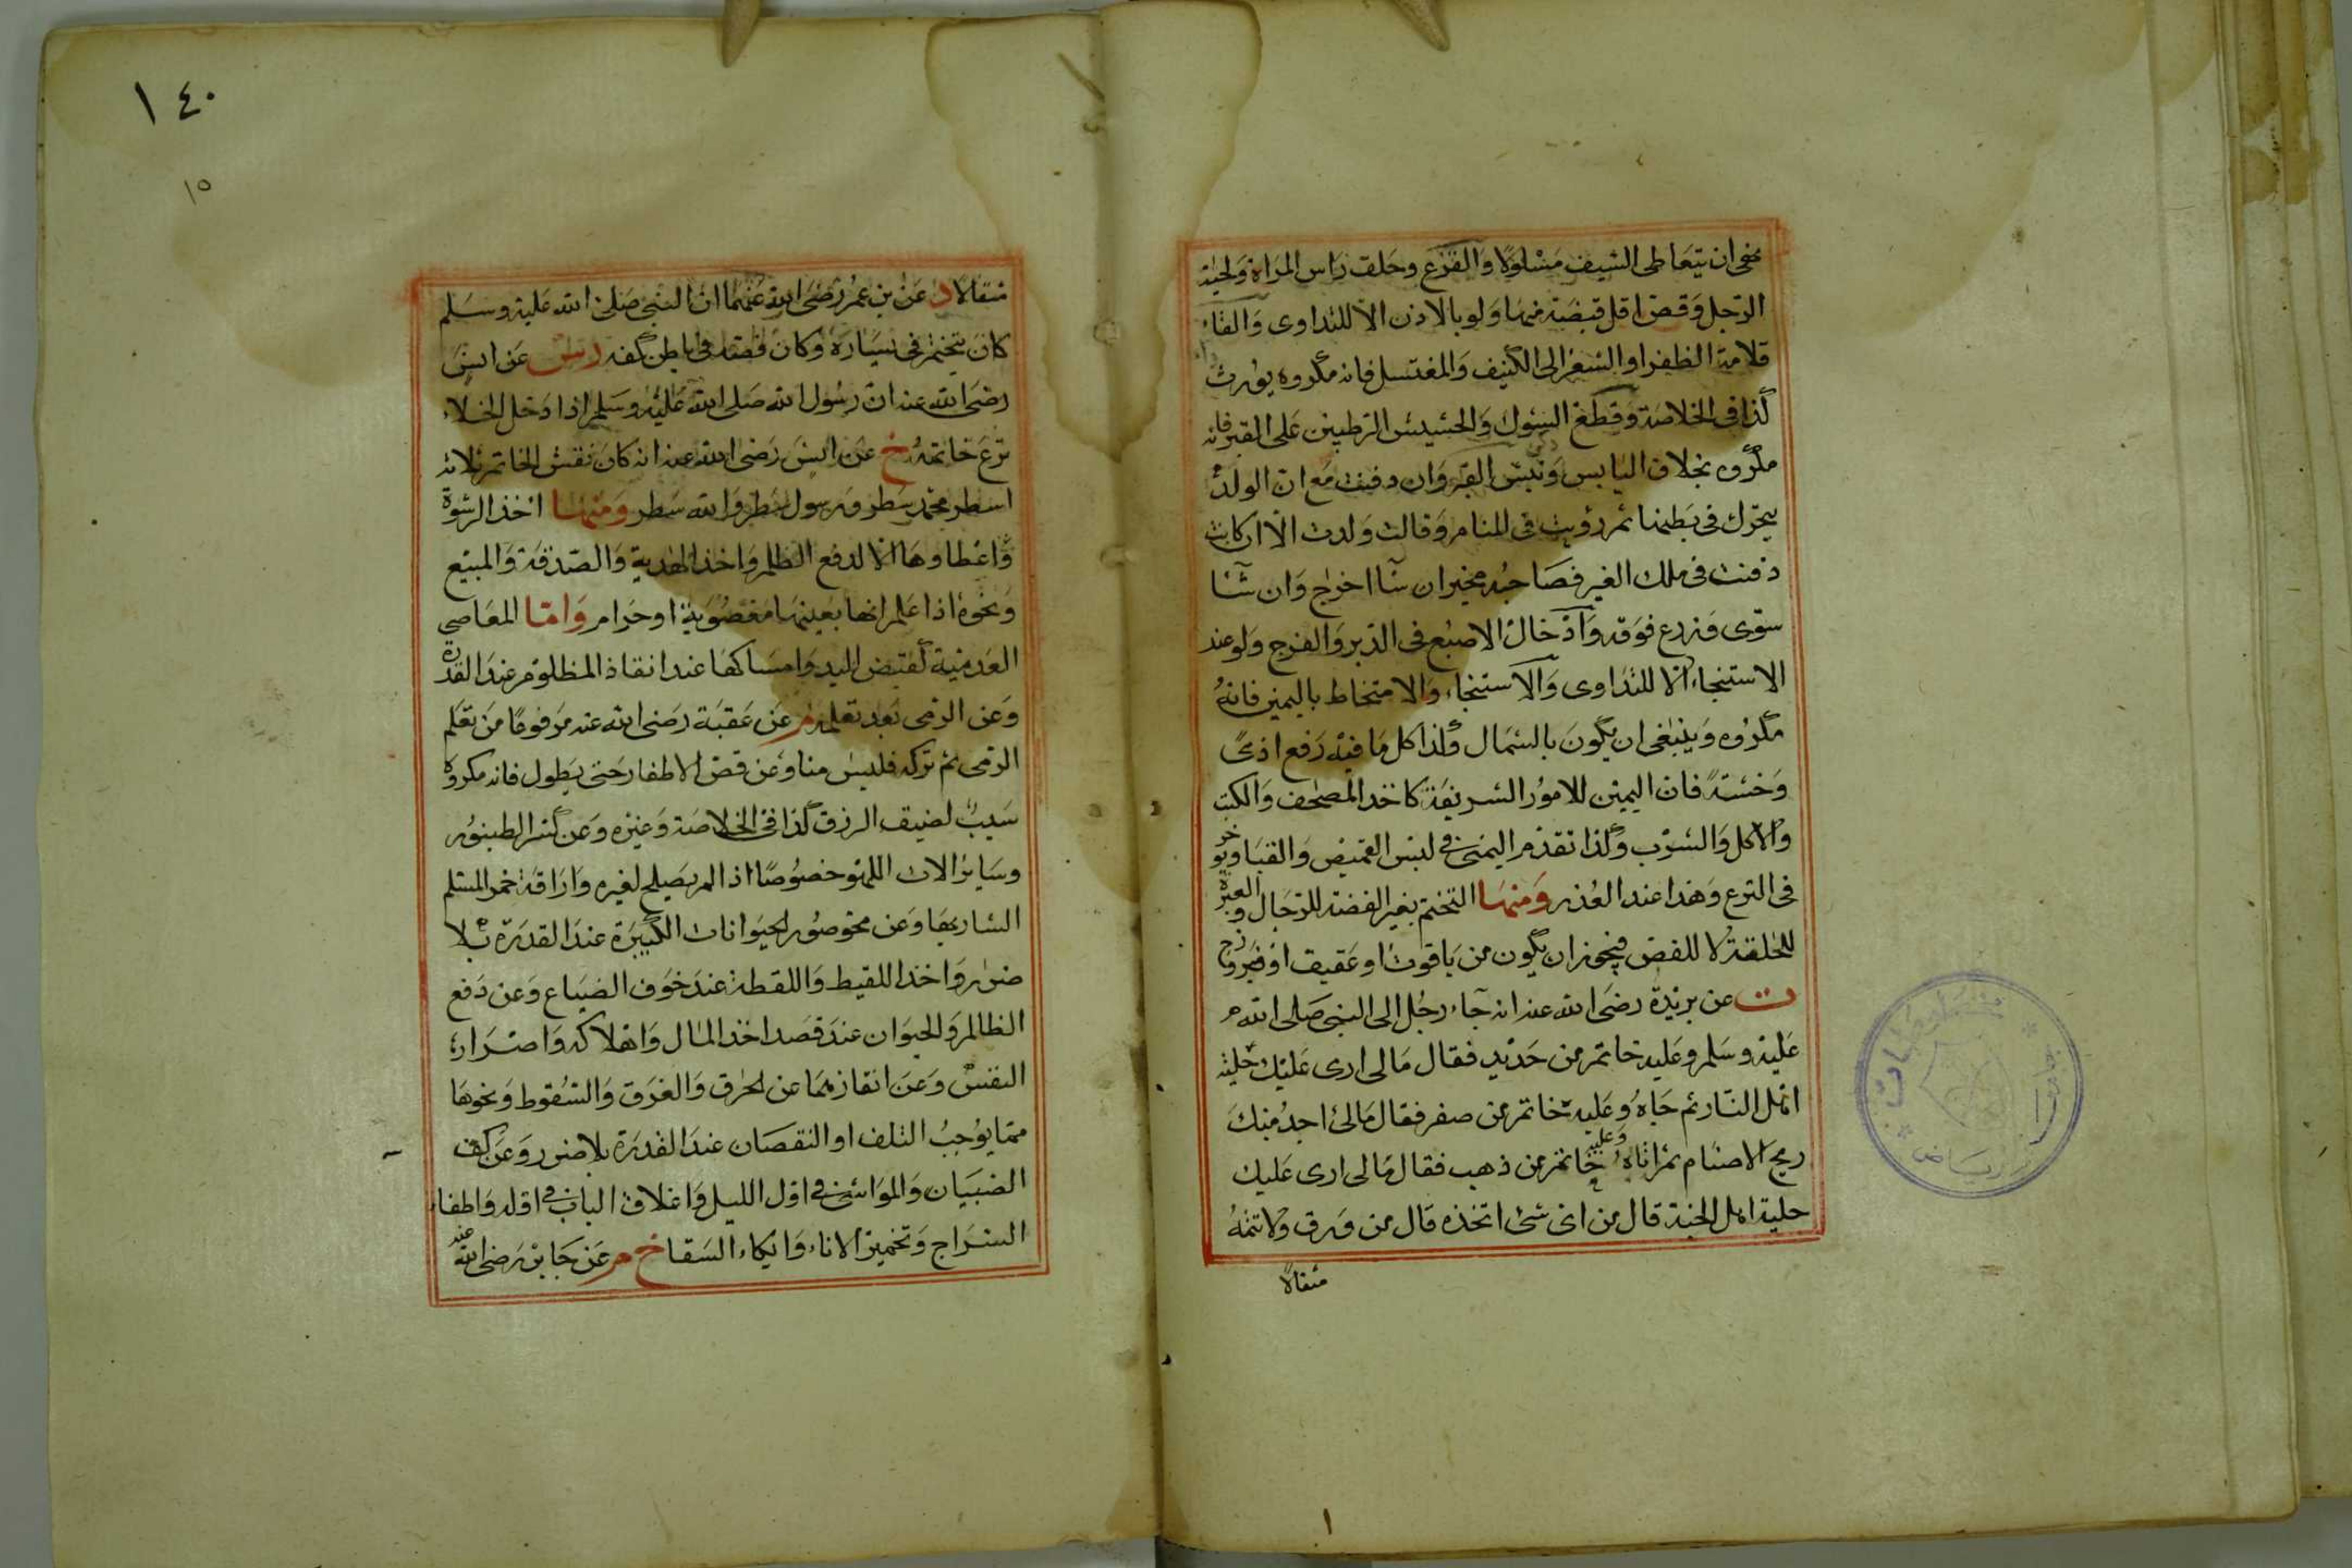 نهى ان يتعاطى السيف مسلولا والقزع وحلق راس المراة ولحية
الرجل وقص اقل قبضة منها ولو بالاذن الا للتداوى والقاء
قلامة الظفر او الشعر الى الكنيف والمغتسل فانه مكروه يورث
كذا فى الخلاصة وقطع الشوك والحشيش الرطبين على القبر فانه
مكروه بخلاف اليابس ونبش القبر وان دفنت مع ان الولد
يتحرك فى بطنها ثم رؤيت فى المنام وقالت ولدت الا ان كانت
دفنت فى ملك الغير فصاحبه مخير ان شآ اخراج وان شآ
سوى وزرع فوقه وادخال الاصبع فى الدبر والفرج ولو عند
الاستنجاء الا للتداوى والاستنجاء والامتخاط باليمين فانه
مكروه وينبغى ان يكون بالشمال وكذا كل ما فيه رفع اذى
وخسة فان اليمين للامور الشريفة كاخذ المصحف والكتب
والاكل والشرب وكذا تقدم اليمنى فى لبس القميص والقبا ويوخر
فى النزع وهذا عند العذر ومنها التختم بغير الفضة للرجال والعبرة
للحلقة لا للفص فيجوز ان يكون من ياقوت او عقيق او فيروزج
ت عن بريدة رضى الله عنه انه جآء رجل الى النبى صلى الله
عليه وسلم وعليه خاتم من حديد فقال مالى ارى عليك حلية
اهل النار ثم جاه وعليه خاتم من صفر فقال مالى اجد منك
ريح الاصنام ثم اتاه وعليه خاتم من ذهب فقال مالى ارى عليك
حلية اهل الجنة قال من اى شئ اتخذه قال من ورق ولا تتمه
مثقالا
١٤٠
١٥
مثقالا د عن بن عمر رضى الله عنهما ان النبى صلى الله عليه وسلم
كان يتختم فى يساره وكان فصه فى باطن كفه د س عن انس
رضى الله عنه ان رسول الله صلى الله عليه وسلم اذا دخل الخلاء
نزع خاتمه خ عن انس رضى الله عنه انه كان نقش الخاتم ثلاثة
اسطر محمد سطر ورسول سطر والله سطر ومنها اخذ الرشوة
واعطاوها الا لدفع الظلم واخذ الهدية والصدقة والمبيع
ونحوه اذا علم انها بعينها مغصوبة او حرام واما المعاصى
العدمية كقبض اليد وامساكها عند انقاذ المظلوم عند القدرة
وعن الرمى بعد تعلمه م عن عقبة رضى الله عنه مرفوعا من تعلم
الرمى ثم تركه فليس منا وعن قص الاظفار حتى يطول فانه مكروه
سبب لضيق الرزق كذا فى الخلاصة وغيره وعن كسر الطنبور
وساير الات اللهو خصوصا اذا لم يصلح لغيره واراقة خمر المسلم
الشارعها وعن محو صور الحيوانات الكبيرة عند القدرة بلا
ضرر واخذ اللقيط واللقطة عند خوف الضياع وعن دفع
الظالم والحيوان عند قصد اخذ المال واهلاكه واضرار
النفس وعن انقاذهما عن الحرق والغرق والسقوط ونحوها
مما يوجب التلف او النقصان عند القدرة بلا ضرر وعن كف
الصبيان والمواشى فى اول الليل واغلاق الباب فى اوله واطفاء
السراج وتخمير الاناء وايكاء السقا خ م عن جابر رضى الله عنه